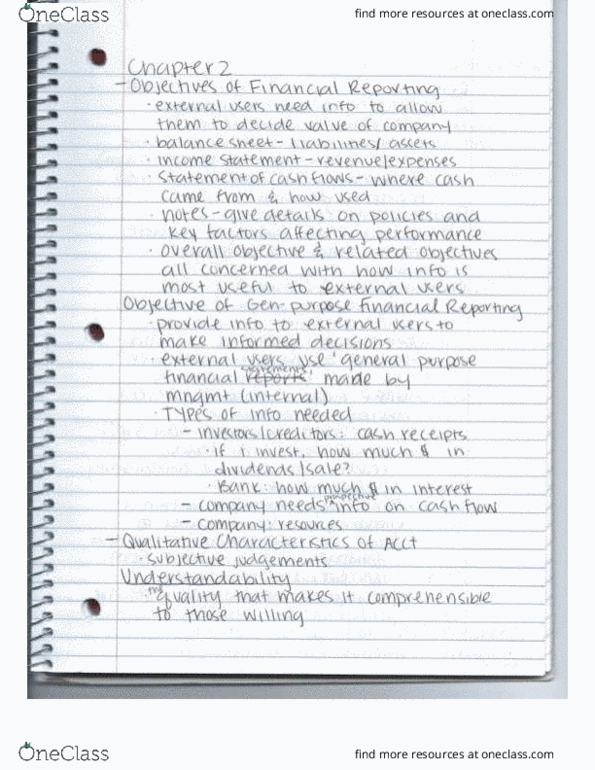 OneClass
find more resources at oneclass.com
Chapter 2
- Objectives of Financial Reporting
· external users need info to allow
them to decide value of company
· balance sheet - liabilities/assets
· income statement - revenue/expenses
· Statement of cash flows - where cash
came from & how used
· notes - give details on policies and
key factors affecting performance
· overall objective & related objectives
all concerned with how info is
most useful to external users
Objective of Gen-purpose Financial Reporting
· provide info to external users to
make informed decisions
· external users use 'general purpose
statements
financial reports' made by
mngmt (internal)
· Types of info needed
- investors/creditors: cash receipts
· if i invest, how much $ in
dividends/sale?
· Bank: how much $ in interest
- company needs info on cash flow
- company: resources
- Qualitative Characteristics of Acct
· subjective judgements
Understandability
· the quality that makes it comprehensible
to those willing
OneClass
find more resources at oneclass.com